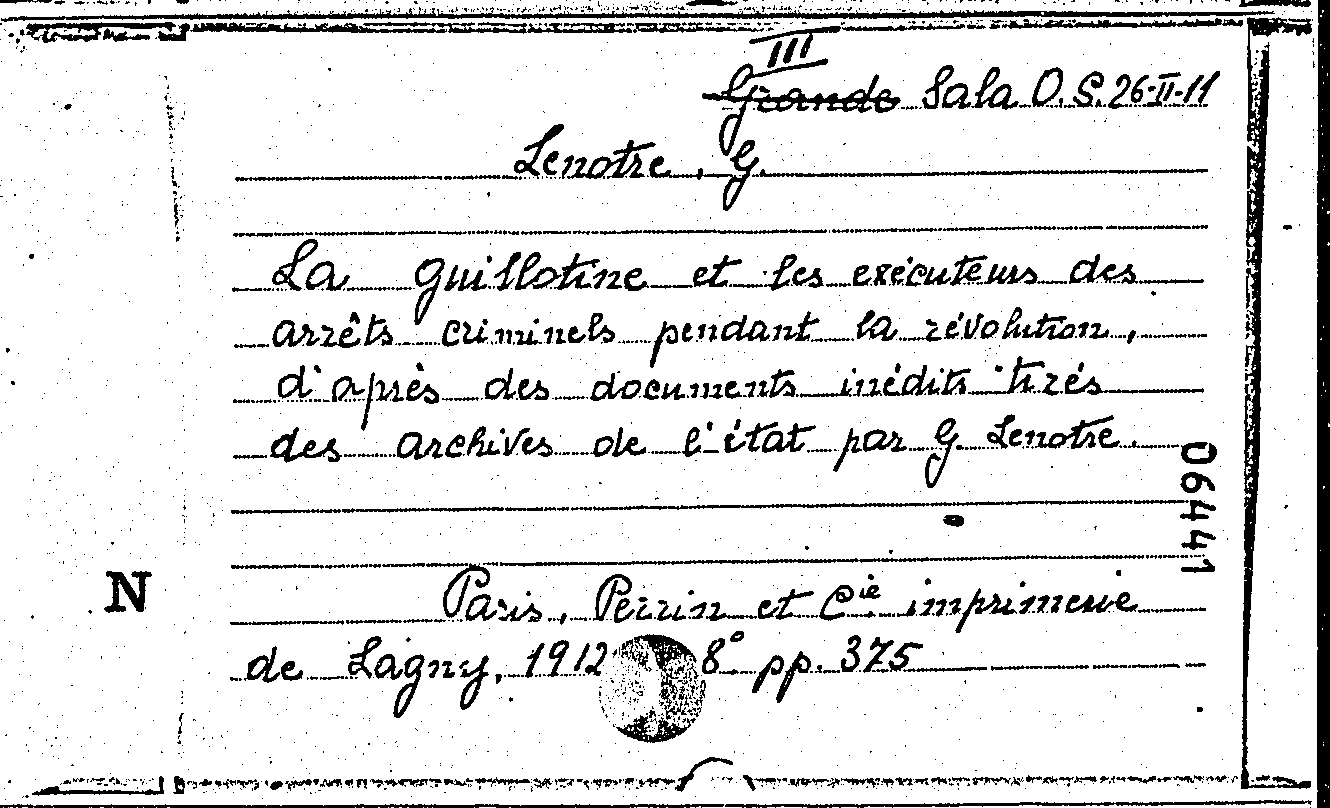 III
Grande Sala O. S. 26-II-11
Lenotre, G.
La guillotine et les exécuteurs des
arrêts criminels pendant la révolution,
d'après des documents inédits tirés
des archives de l'état par G. Lenotre.
06441
N
Paris, Perrin et Cie imprimerie
de Lagny, 1912 8° pp. 375